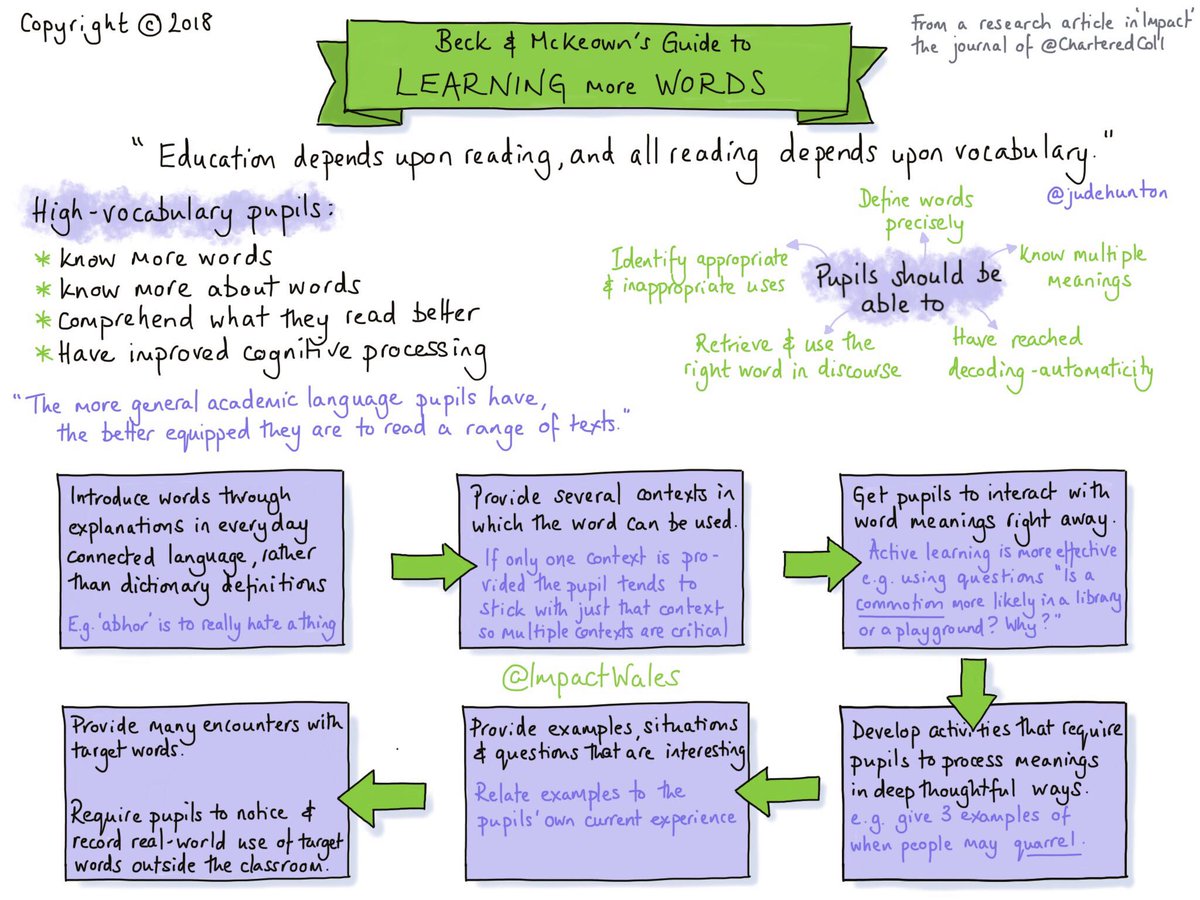 Copyright © 2018
Beck & McKeown's Guide to
LEARNING more WORDS
From a research article in 'Impact'
the journal of @CharteredColl
"Education depends upon reading, and all reading depends upon vocabulary."
@judehunton
High-vocabulary pupils:
* Know more words
* Know more about words
* Comprehend what they read better
* Have improved cognitive processing
Pupils should be
able to
Define words
precisely
Know multiple
meanings
Have reached
decoding-automaticity
Retrieve & use the
right word in discourse
Identify appropriate
& inappropriate uses
"The more general academic language pupils have,
the better equipped they are to read a range of texts."
Introduce words through
explanations in everyday
connected language, rather
than dictionary definitions
E.g. 'abhor' is to really hate a thing
Provide several contexts in
which the word can be used.
If only one context is pro-
vided the pupil tends to
stick with just that context
so multiple contexts are critical
Get pupils to interact with
word meanings right away.
Active learning is more effective
e.g. using questions "Is a
commotion more likely in a library
or a playground? Why?"
@ImpactWales
Develop activities that require
pupils to process meanings
in deep thoughtful ways.
e.g. give 3 examples of
when people may quarrel.
Provide examples, situations
& questions that are interesting
Relate examples to the
pupils' own current experience
Provide many encounters with
target words.
Require pupils to notice &
record real-world use of target
words outside the classroom.